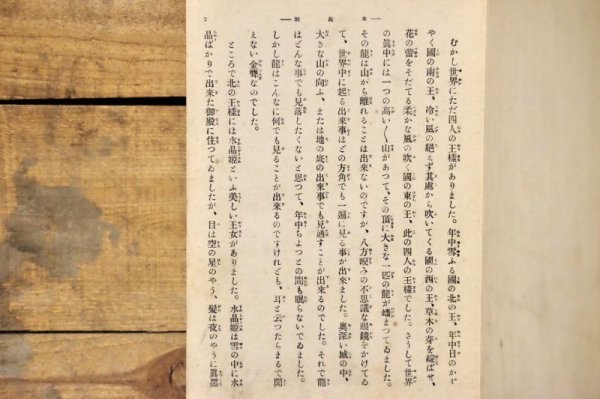 水晶姫
3
むかし世界にただ四人の王様がありました。年中雪ふる國の北の王、年中日のかゞ
やく國の南の王、冷い風の絶えず其處から吹いてくる國の西の王、草木の芽を綻ばせ、
花の蕾をそだてる柔かな風の吹く國の東の王、此の四人の王様でした。さうして世界
の眞中には一つの高い〱山があつて、その頂に大きな一匹の龍が蟠まつてゐました。
その龍は山から離れることは出來ないのですが、八方睨みの不思議な眼鏡をかけてゐ
て、世界中に起る出來事はどの方角でも一遍に見る事が出來ました。裏深い城の中、
大きな山の向ふ、または地の底の出來事でも見透すことが出來るのでした。それで龍
はどんな事でも見落したくないと思つて、年中ちよつとの間も眠らないでゐました。
しかし龍はこんなに何でも見ることが出來るのですけれども、耳と云つたらまるで聞
えない金聾なのでした。
ところで北の王様には水晶姫といふ美しい王女がありました。水晶姫は雪の中に水
晶ばかりで出來た御殿に住つてゐましたが、目は空の星のやう、髪は夜のやうに眞黑